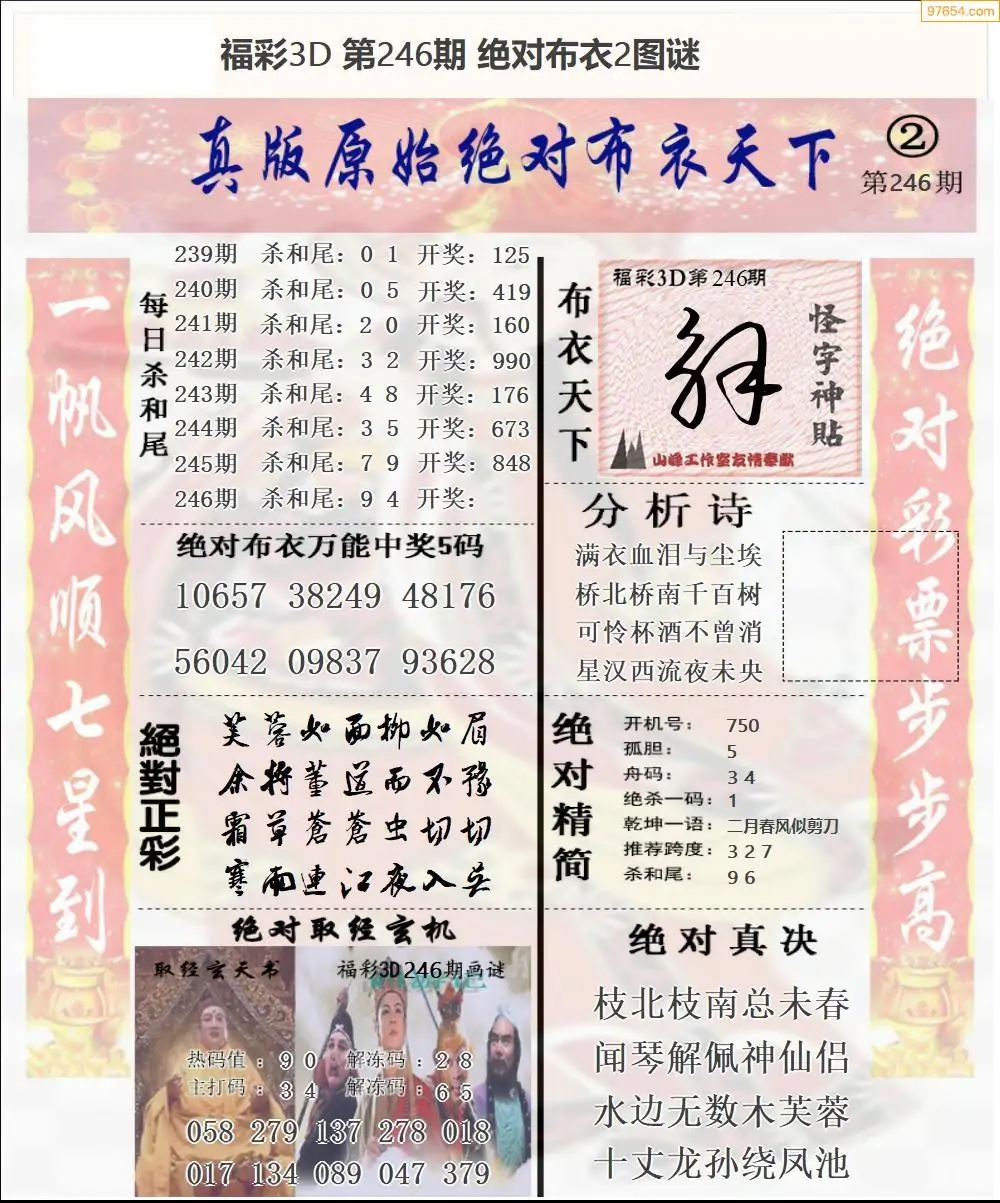 97654.com
福彩3D 第246期 绝对布衣2图谜
真版原始绝对布衣天下
②
第246期
一帆风顺七星到
每日杀和尾
239期 杀和尾：0 1 开奖：125
240期 杀和尾：0 5 开奖：419
241期 杀和尾：2 0 开奖：160
242期 杀和尾：3 2 开奖：990
243期 杀和尾：4 8 开奖：176
244期 杀和尾：3 5 开奖：673
245期 杀和尾：7 9 开奖：848
246期 杀和尾：9 4 开奖：
绝对布衣万能中奖5码
10657 38249 48176
56042 09837 93628
絕對正彩
芙蓉如面柳如眉
余将董道而不豫
霜草蒼蒼虫切切
寒雨連江夜入吴
绝对取经玄机
取经玄天书
福彩3D246期画谜
热码值：9 0 解冻码：2 8
主打码：3 4 解冻码：6 5
058 279 137 278 018
017 134 089 047 379
布衣天下
福彩3D第246期
怪字神貼
山峰工作室友情奉献
分析诗
满衣血泪与尘埃
桥北桥南千百树
可怜杯酒不曾消
星汉西流夜未央
绝对精简
开机号：750
孤胆：5
舟码：3 4
绝杀一码：1
乾坤一语：二月春风似剪刀
推荐跨度：3 2 7
杀和尾：9 6
绝对真决
枝北枝南总未春
闻琴解佩神仙侣
水边无数木芙蓉
十丈龙孙绕凤池
绝对彩票步步高